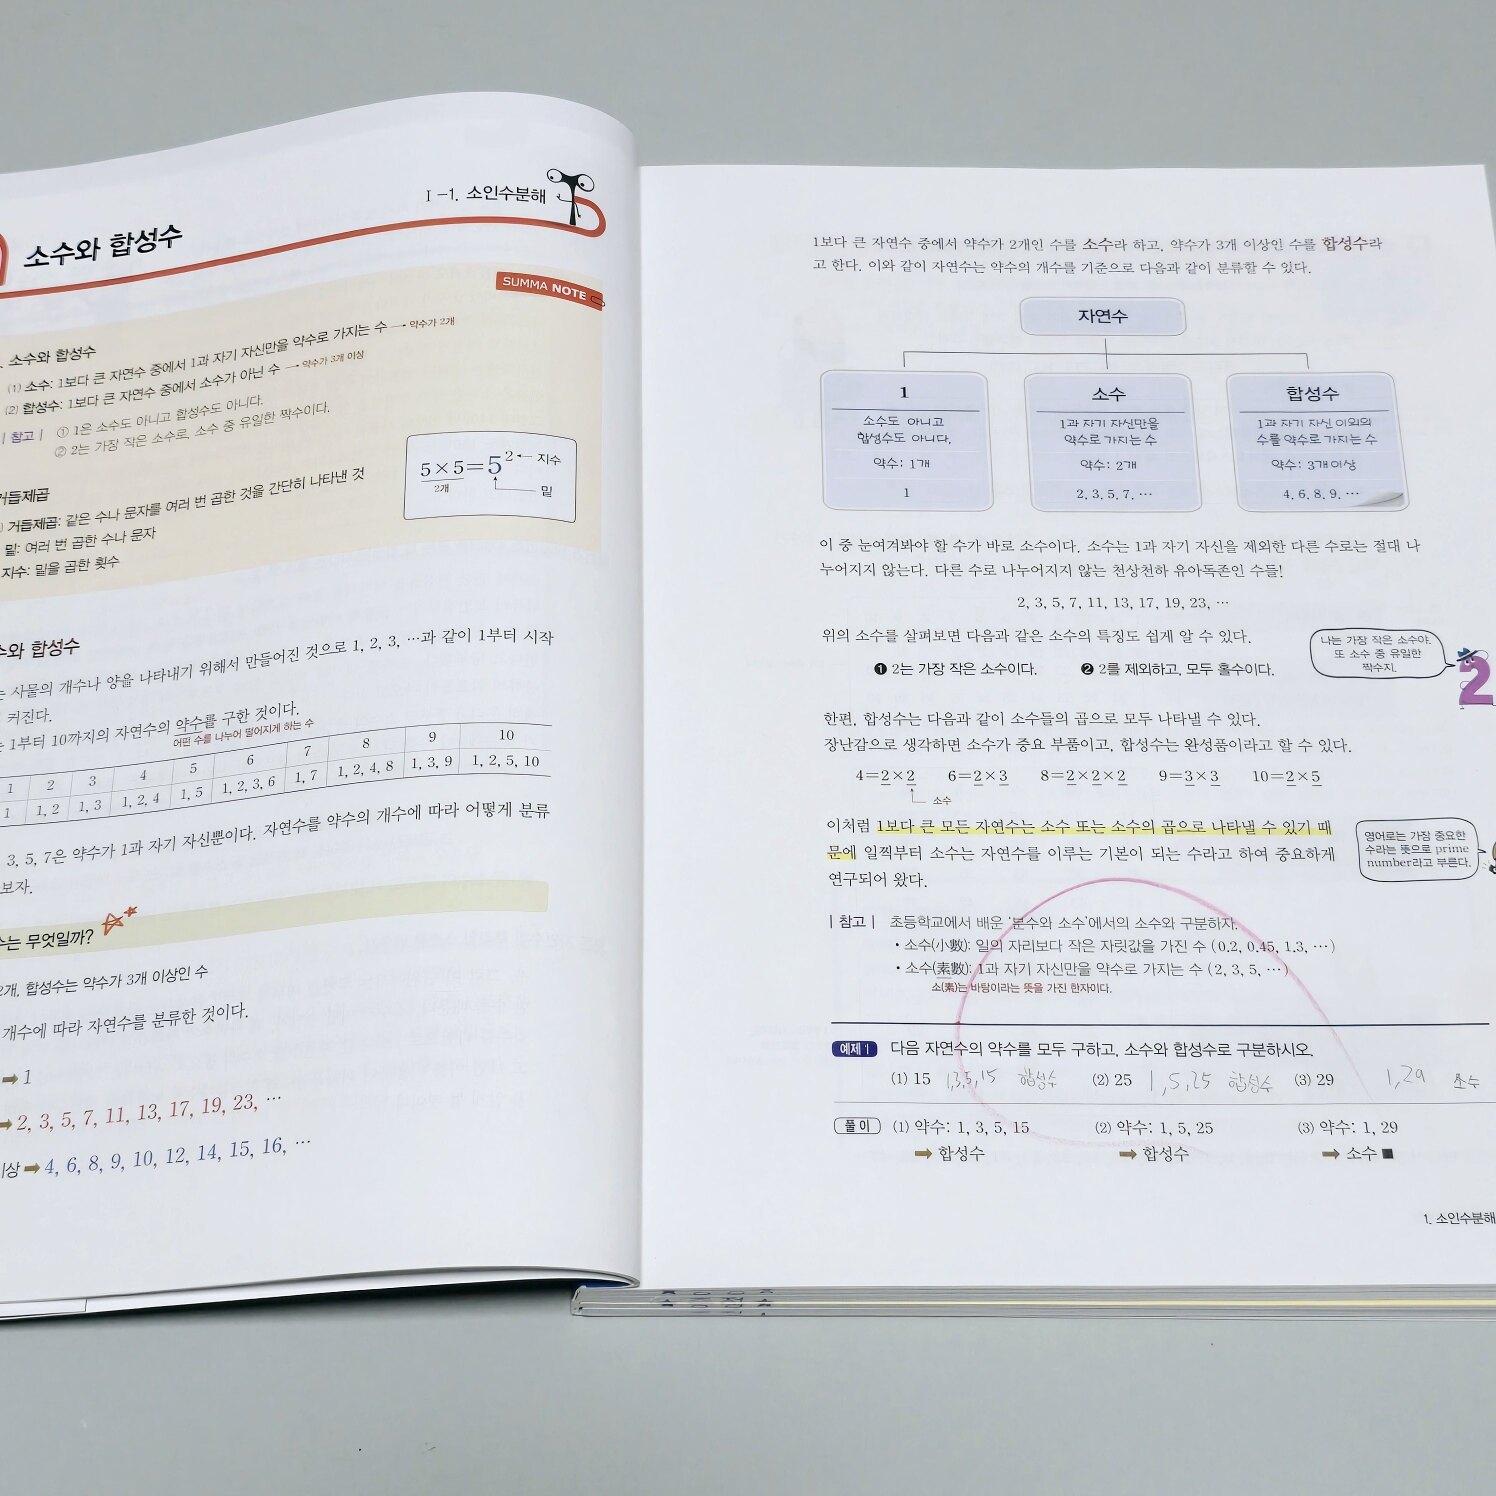 Ⅰ-1. 소인수분해
소수와 합성수
SUMMA NOTE
소수와 합성수
(1) 소수: 1보다 큰 자연수 중에서 1과 자기 자신만을 약수로 가지는 수 → 약수가 2개
(2) 합성수: 1보다 큰 자연수 중에서 소수가 아닌 수 → 약수가 3개 이상
| 참고 | ① 1은 소수도 아니고 합성수도 아니다.
② 2는 가장 작은 소수로, 소수 중 유일한 짝수이다.
거듭제곱
거듭제곱: 같은 수나 문자를 여러 번 곱한 것을 간단히 나타낸 것
밑: 여러 번 곱한 수나 문자
지수: 밑을 곱한 횟수
5×5=5² ← 지수
2개
밑
와 합성수
는 사물의 개수나 양을 나타내기 위해서 만들어진 것으로 1, 2, 3, …과 같이 1부터 시작
커진다.
는 1부터 10까지의 자연수의 약수를 구한 것이다.
어떤 수를 나누어 떨어지게 하는 수
1 2 3 4 5 6 7 8 9 10
1 1, 2 1, 3 1, 2, 4 1, 5 1, 2, 3, 6 1, 7 1, 2, 4, 8 1, 3, 9 1, 2, 5, 10
3, 5, 7은 약수가 1과 자기 자신뿐이다. 자연수를 약수의 개수에 따라 어떻게 분류
보자.
수는 무엇일까?
2개, 합성수는 약수가 3개 이상인 수
개수에 따라 자연수를 분류한 것이다.
➡ 1
➡ 2, 3, 5, 7, 11, 13, 17, 19, 23, …
이상 ➡ 4, 6, 8, 9, 10, 12, 14, 15, 16, …
1보다 큰 자연수 중에서 약수가 2개인 수를 소수라 하고, 약수가 3개 이상인 수를 합성수라
고 한다. 이와 같이 자연수는 약수의 개수를 기준으로 다음과 같이 분류할 수 있다.
자연수
1
소수도 아니고
합성수도 아니다.
약수: 1개
1
소수
1과 자기 자신만을
약수로 가지는 수
약수: 2개
2, 3, 5, 7, …
합성수
1과 자기 자신 이외의
수를 약수로 가지는 수
약수: 3개 이상
4, 6, 8, 9, …
이 중 눈여겨봐야 할 수가 바로 소수이다. 소수는 1과 자기 자신을 제외한 다른 수로는 절대 나
누어지지 않는다. 다른 수로 나누어지지 않는 천상천하 유아독존인 수들!
2, 3, 5, 7, 11, 13, 17, 19, 23, …
위의 소수를 살펴보면 다음과 같은 소수의 특징도 쉽게 알 수 있다.
❶ 2는 가장 작은 소수이다. ❷ 2를 제외하고, 모두 홀수이다.
나는 가장 작은 소수야.
또 소수 중 유일한
짝수지.
2
한편, 합성수는 다음과 같이 소수들의 곱으로 모두 나타낼 수 있다.
장난감으로 생각하면 소수가 중요 부품이고, 합성수는 완성품이라고 할 수 있다.
4=2×2 6=2×3 8=2×2×2 9=3×3 10=2×5
소수
이처럼 1보다 큰 모든 자연수는 소수 또는 소수의 곱으로 나타낼 수 있기 때
문에 일찍부터 소수는 자연수를 이루는 기본이 되는 수라고 하여 중요하게
연구되어 왔다.
영어로는 가장 중요한
수라는 뜻으로 prime
number라고 부른다.
| 참고 | 초등학교에서 배운 '분수와 소수'에서의 소수와 구분하자.
• 소수(小數): 일의 자리보다 작은 자릿값을 가진 수 (0.2, 0.45, 1.3, …)
• 소수(素數): 1과 자기 자신만을 약수로 가지는 수 (2, 3, 5, …)
소(素)는 바탕이라는 뜻을 가진 한자이다.
예제 1 다음 자연수의 약수를 모두 구하고, 소수와 합성수로 구분하시오.
(1) 15 1,3,5,15 합성수 (2) 25 1,5,25 합성수 (3) 29 1,29 소수
풀이 (1) 약수: 1, 3, 5, 15 (2) 약수: 1, 5, 25 (3) 약수: 1, 29
➡ 합성수 ➡ 합성수 ➡ 소수 ■
1. 소인수분해